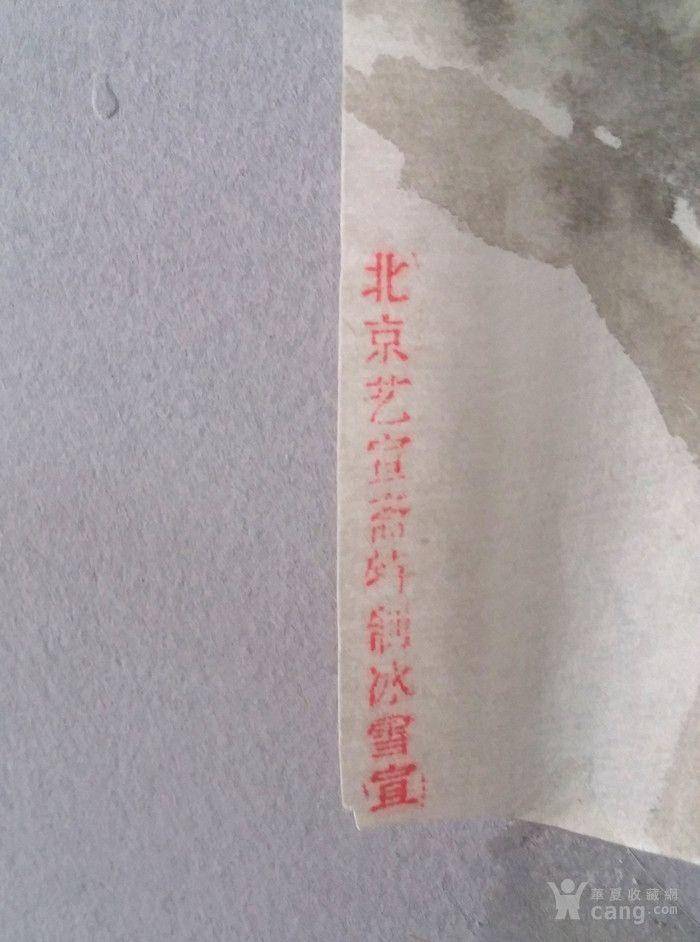 北京艺宣斋特制冰雪宣
華夏收藏網
cang.com